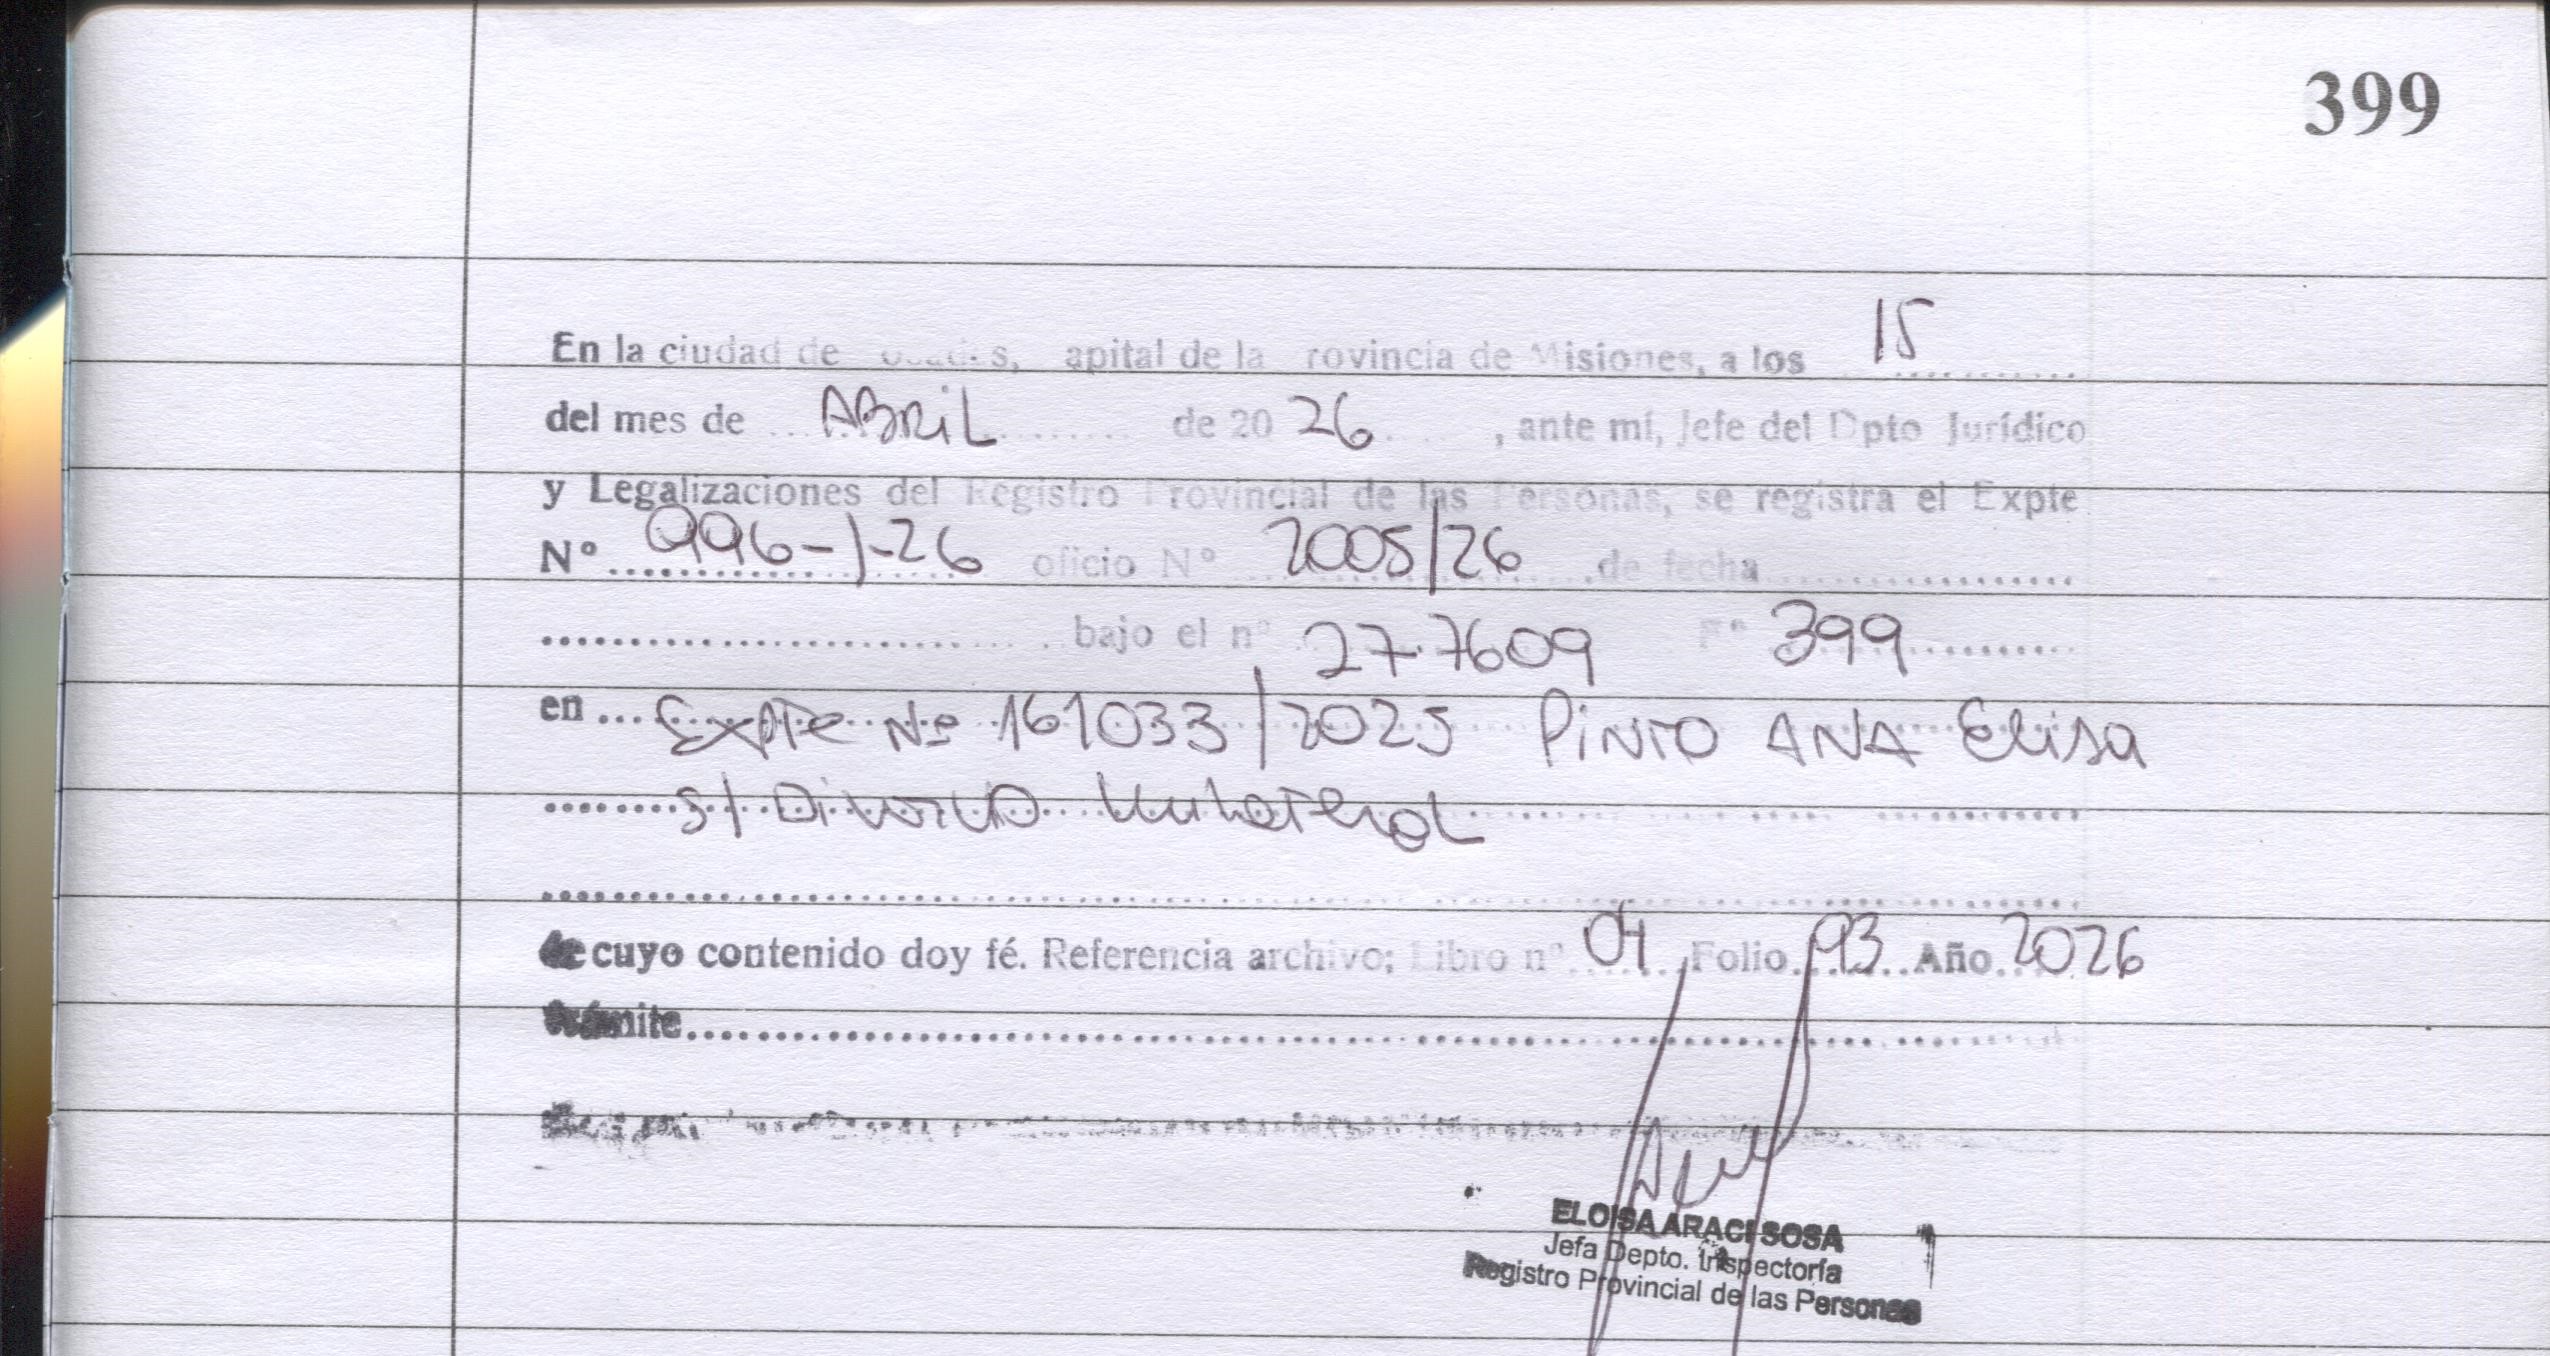 399
En la ciudad de Posadas, Capital de la Provincia de Misiones, a los 15
del mes de ABRIL de 20 26, ante mí, Jefe del Dpto Jurídico
y Legalizaciones del Registro Provincial de las Personas, se registra el Expte
Nº 996-J-26 oficio Nº 2005/26 de fecha
bajo el nº 27.7609 Fº 399
en Expte Nº 161033/2025 PINTO ANA Elisa
s/ Divorcio Unilateral
de cuyo contenido doy fé. Referencia archivo; Libro nº 04 Folio 93 Año 2026
trámite
ELOISA ARACI SOSA
Jefa Depto. Inspectoría
Registro Provincial de las Personas